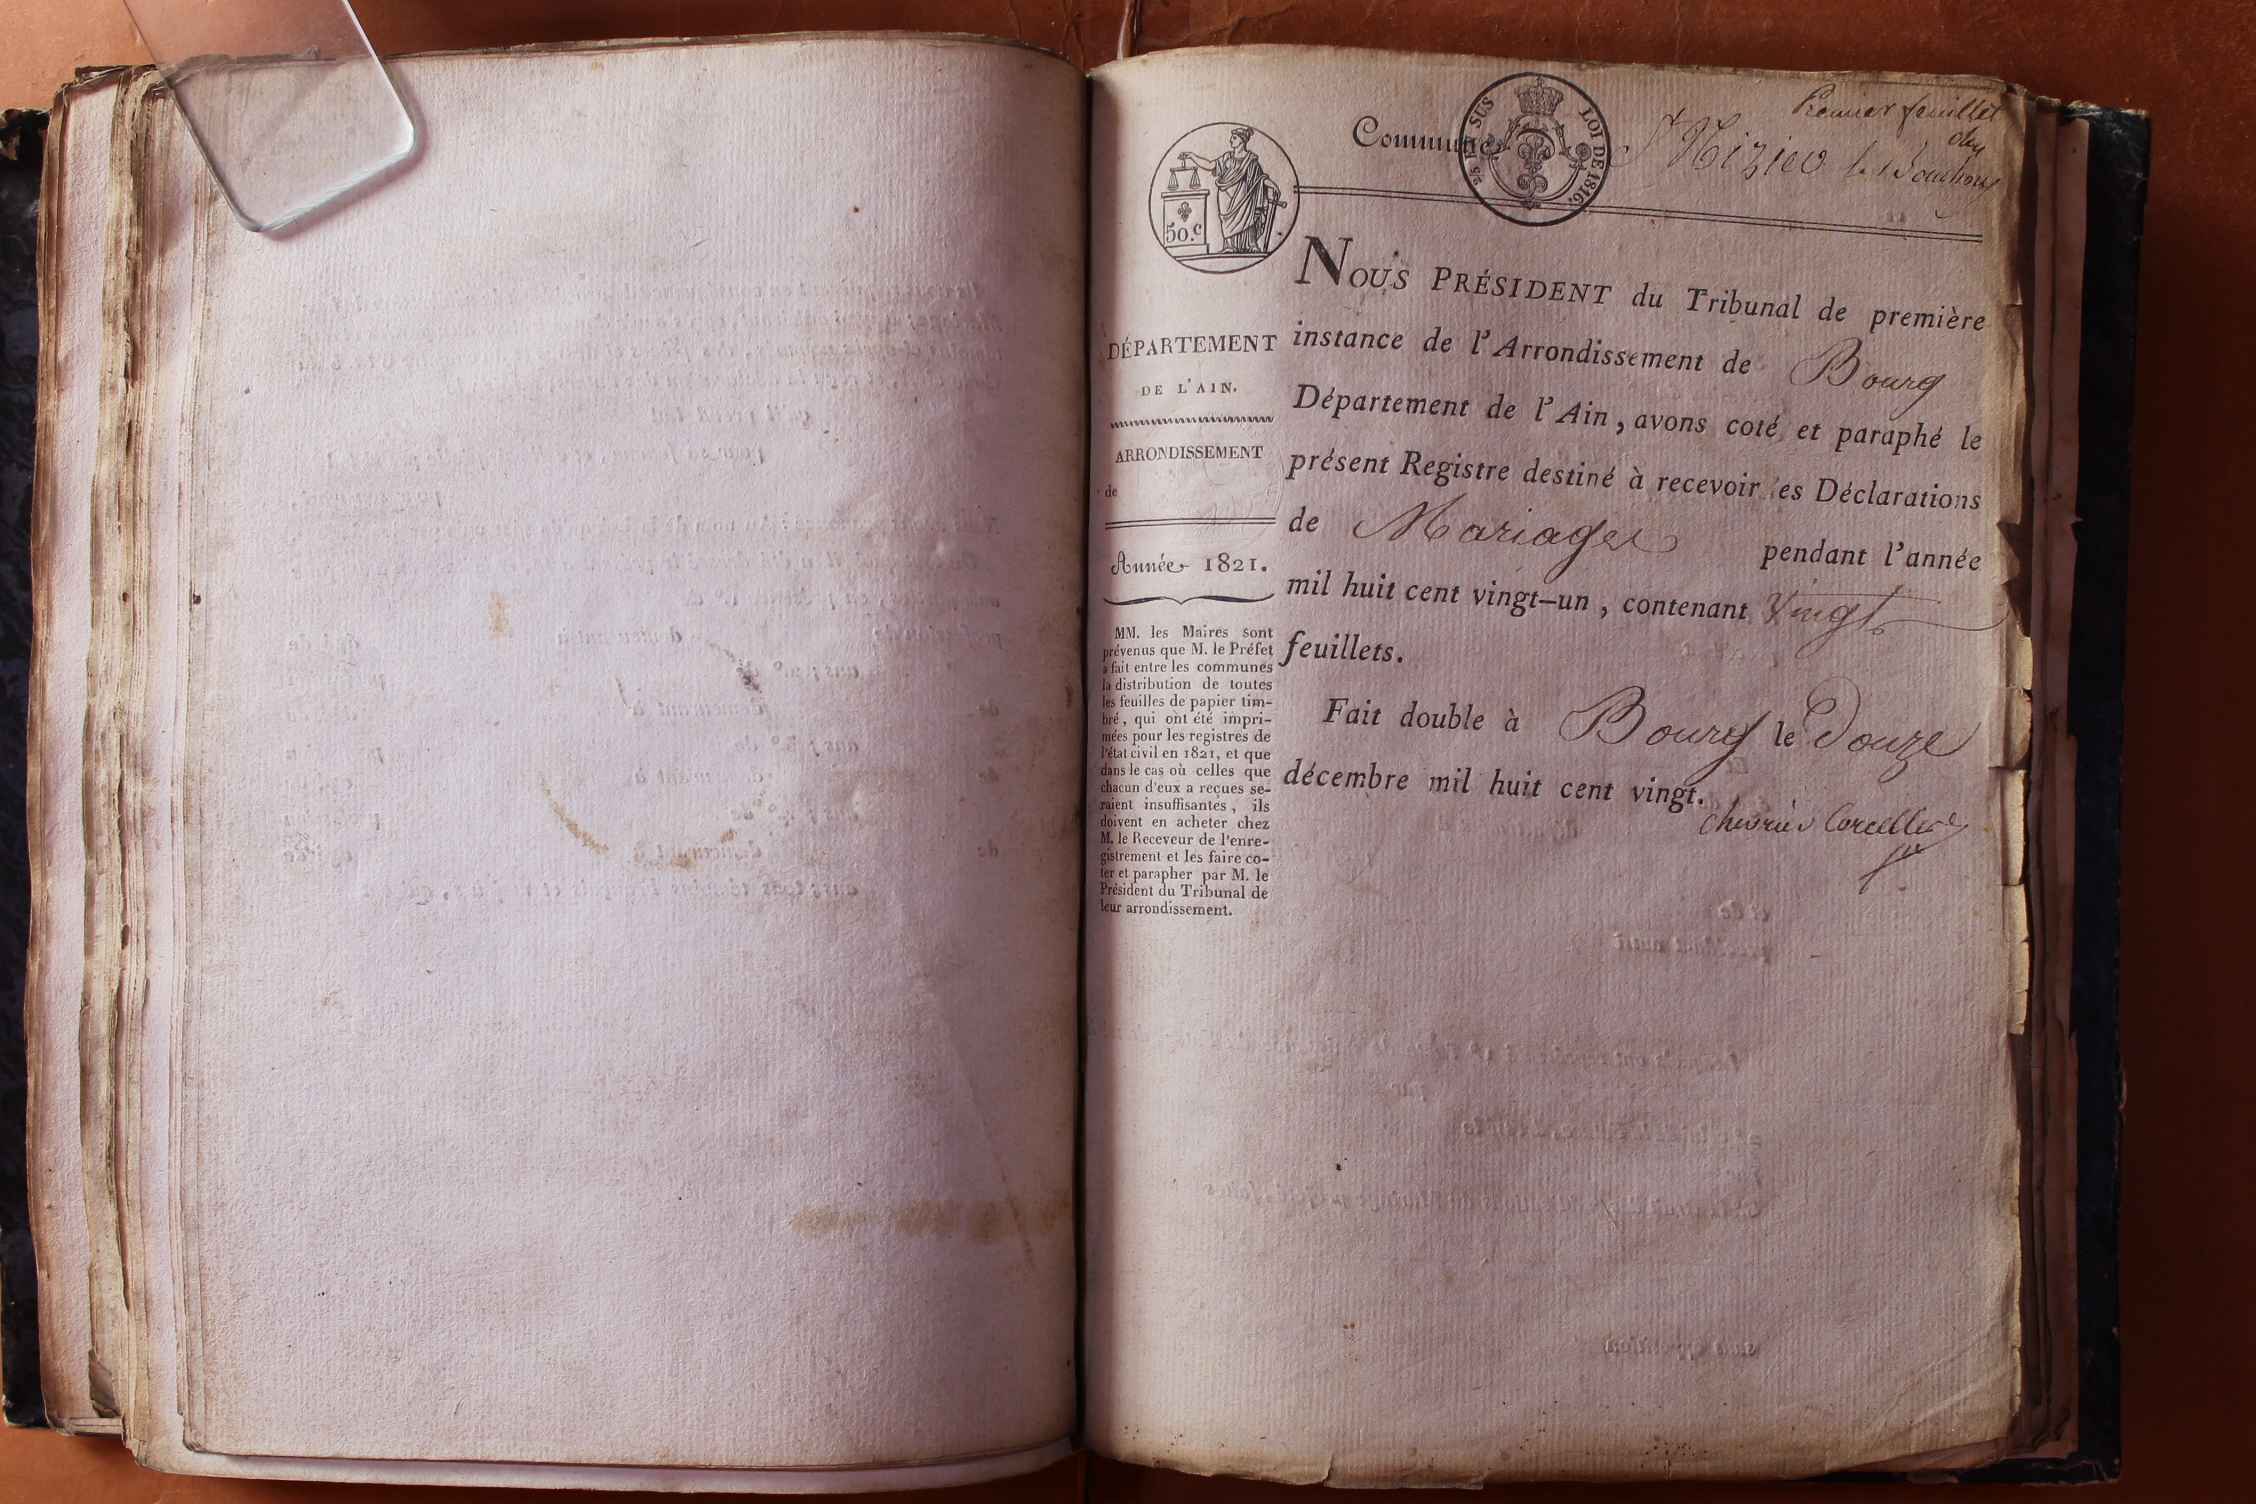 Premier feuillet
Commune
St Nizier le Bouchoux
EN SUS
LOI DE 1816.
50.c
DÉPARTEMENT
DE L'AIN.
ARRONDISSEMENT
de
Année 1821.
MM. les Maires sont
prévenus que M. le Préfet
a fait entre les communes
la distribution de toutes
les feuilles de papier tim-
bré, qui ont été impri-
mées pour les registres de
l'état civil en 1821, et que
dans le cas où celles que
chacun d'eux a reçues se-
raient insuffisantes, ils
doivent en acheter chez
M. le Receveur de l'enre-
gistrement et les faire co-
ter et parapher par M. le
Président du Tribunal de
leur arrondissement.
NOUS PRÉSIDENT du Tribunal de première
instance de l'Arrondissement de Bourg
Département de l'Ain, avons coté et paraphé le
présent Registre destiné à recevoir les Déclarations
de Mariages pendant l'année
mil huit cent vingt-un, contenant Vingt
feuillets.
Fait double à Bourg le Douze
décembre mil huit cent vingt.